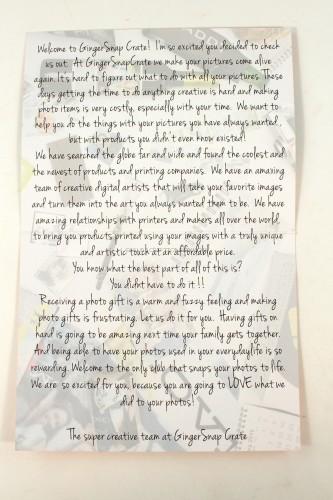 Welcome to GingerSnap Crate! I'm so excited you decided to check
us out. At GingerSnapCrate we make your pictures come alive
again. It's hard to figure out what to do with all your pictures. These
days getting the time to do anything creative is hard and making
photo items is very costly, especially with your time. We want to
help you do the things with your pictures you have always wanted,
but with products you didn't even know existed!
We have searched the globe far and wide and found the coolest and
the newest of products and printing companies. We have an amazing
team of creative digital artists that will take your favorite images
and turn them into the art you always wanted them to be. We have
amazing relationships with printers and makers all over the world,
to bring you products printed using your images with a truly unique
and artistic touch at an affordable price.
You know what the best part of all of this is?
You didnt have to do it!!
Receiving a photo gift is a warm and fuzzy feeling and making
photo gifts is frustrating. Let us do it for you. Having gifts on
hand is going to be amazing next time your family gets together.
And being able to have your photos used in your everyday life is so
rewarding. Welcome to the only club that snaps your photos to life.
We are so excited for you, because you are going to LOVE what we
did to your photos!
The super creative team at GingerSnap Crate